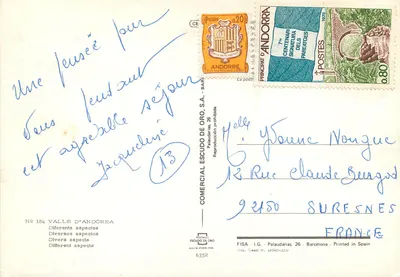 Une pensée pur
vous pendant
cet agréable séjour
Jacqueline
13
Nº 184 VALLS D'ANDORRA
Diferents aspectes
Diversos aspectos
Divers aspects
Different aspects
COMERCIAL ESCUDO DE ORO, S.A.
Palaudarias, 26
Reproducción prohibida
6352
20
ANDORRE
PRINCIPAT D'ANDORRA
7è CENTENARI
SIGNATURA
DELS
PAREATGES
POSTES
0.80
Melle Yvonne
12 Rue Claude
92150 SURESNES
FRANCE
FISA - I.G. - Palaudarias, 26 - Barcelona - Printed in Spain